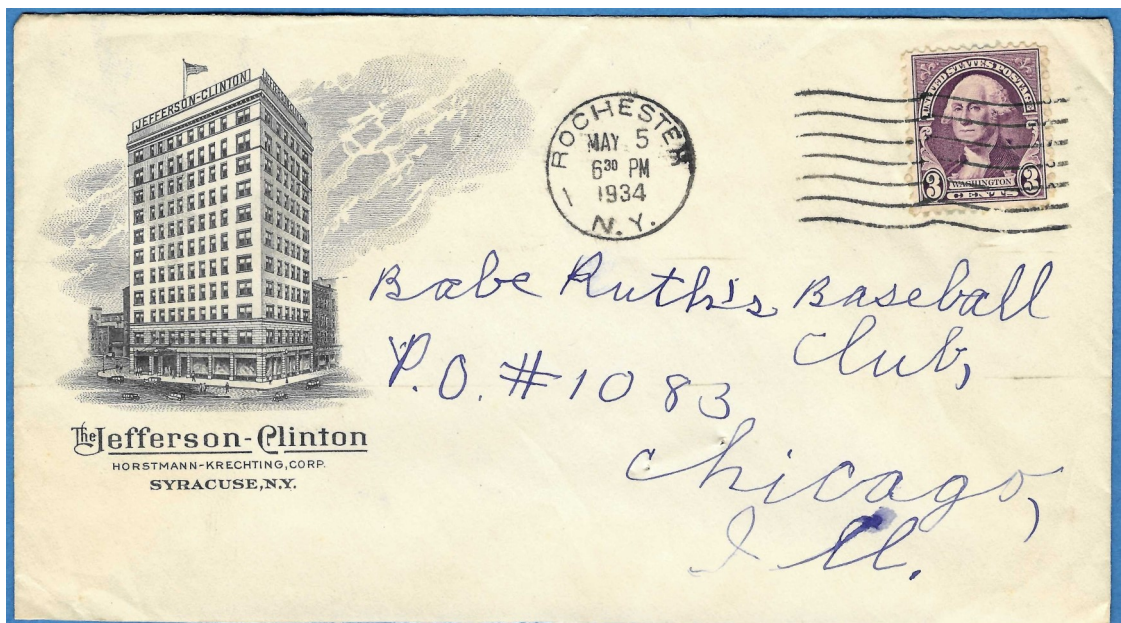 JEFFERSON-CLINTON
The Jefferson-Clinton
HORSTMANN-KRECHTING, CORP.
SYRACUSE, N.Y.
ROCHESTER
1
MAY 5
6³⁰ PM
1934
N.Y.
UNITED STATES POSTAGE
3 WASHINGTON 3
CENTS
Babe Ruth's Baseball
Club,
P.O. #1083
Chicago,
Ill.